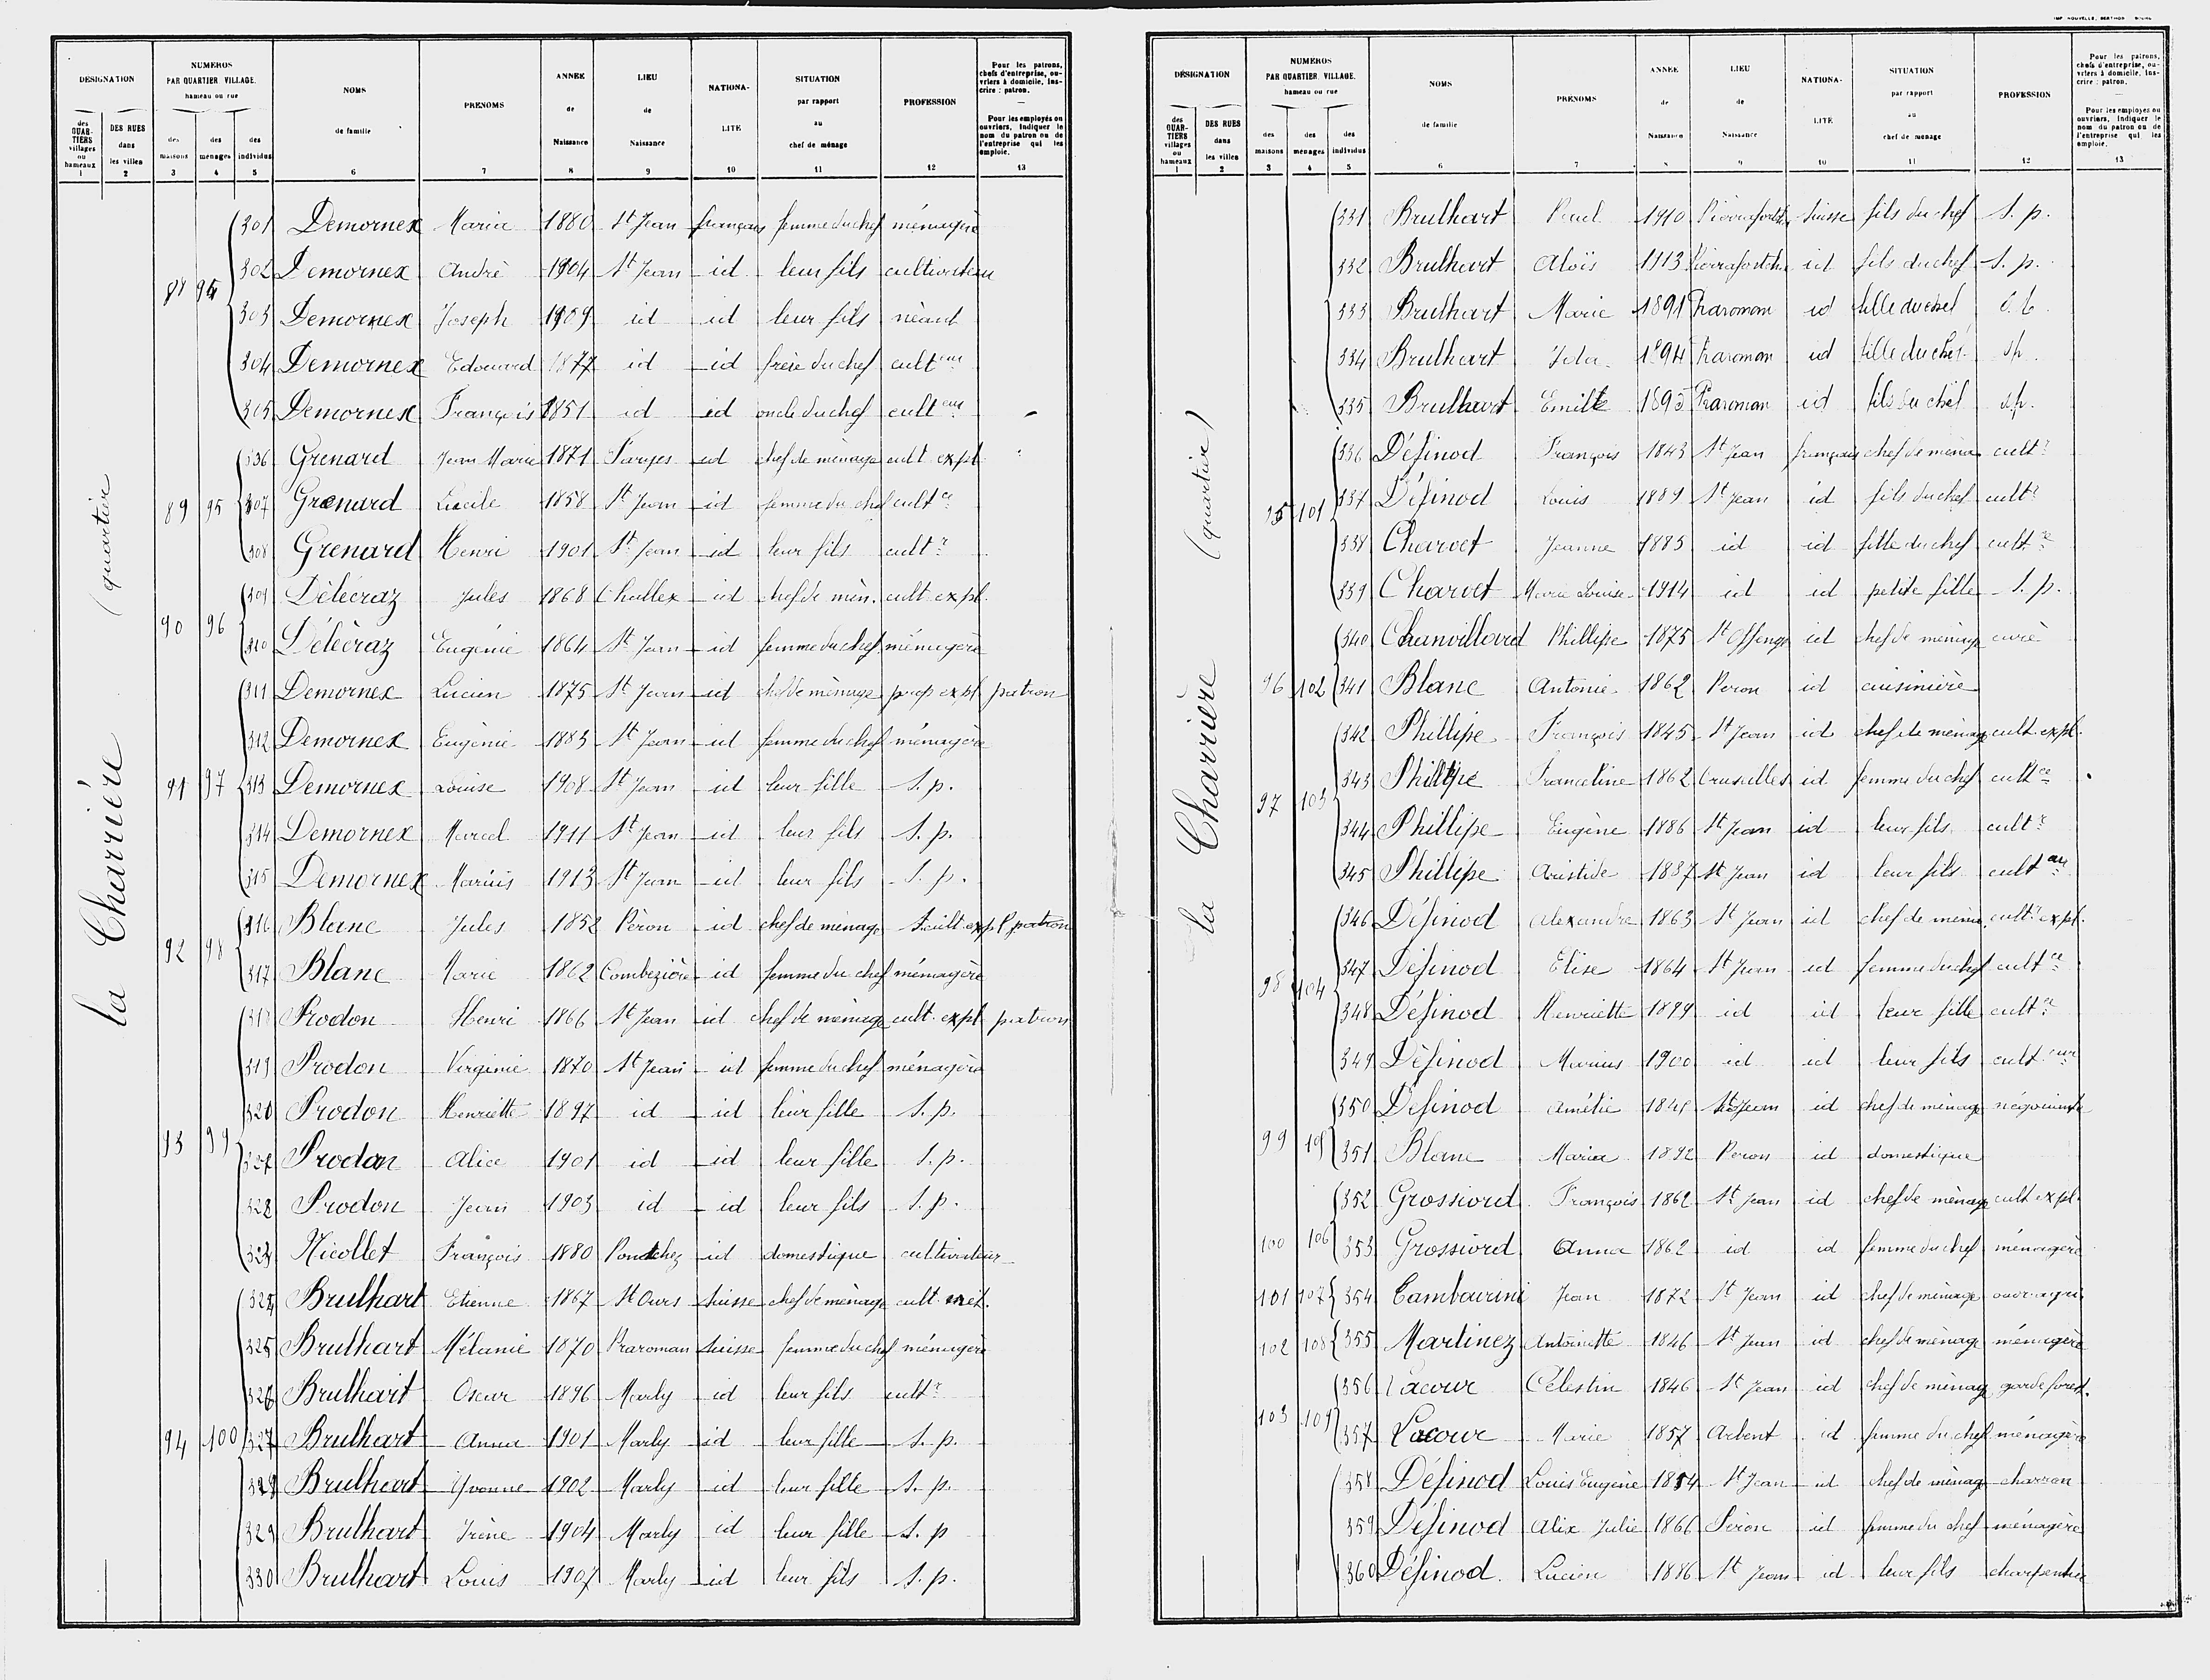 IMP NOUVELLE, BERTHOD BOURG
DESIGNATION
des QUARTIERS villages ou hameaux 1
DES RUES dans les villes 2
NUMEROS PAR QUARTIER VILLAGE. hameau ou rue
des maisons 3
des ménages 4
des individus 5
NOMS de famille 6
PRENOMS 7
ANNEE de Naissance 8
LIEU de Naissance 9
NATIONALITE 10
SITUATION par rapport au chef de ménage 11
PROFESSION 12
Pour les patrons, chefs d'entreprise, ouvriers à domicile, Inscrire : patron.
—
Pour les employés ou ouvriers, indiquer le nom du patron ou de l'entreprise qui les emploie. 13
la Charrière (quartier
301 Demornex Maria 1880 St Jean français femme du chef ménagère
88 302 Demornex André 1904 St Jean id leur fils cultivateur
303 Demornex Joseph 1909 id id leur fils néant
304 Demornex Edouard 1877 id id frère du chef cult eur
305 Demornex François 1851 id id oncle du chef cult eur
336 Grenard Jean Marie 1871 Farges id chef de ménage cult expl
89 95 307 Grenard Lucile 1858 St Jean id femme du chef cult ce
308 Grenard Henri 1901 St Jean id leur fils cult r
309 Délécraz Jules 1868 Challex id chef de mén. cult expl.
90 96 310 Délécraz Eugénie 1864 St Jean id femme du chef ménagère
311 Demornex Lucien 1875 St Jean id chef de ménage prop expl patron
312 Demornex Eugénie 1883 St Jean id femme du chef ménagère
91 97 313 Demornex Louise 1908 St Jean id leur fille S. p.
314 Demornex Marcel 1911 St Jean id leur fils S. p.
315 Demornex Marius 1913 St Jean id leur fils S. p.
316 Blanc Jules 1852 Péron id chef de ménage cult expl patron
92 98 317 Blanc Marie 1862 Combezière id femme du chef ménagère
318 Prodon Henri 1866 St Jean id chef de ménage cult. expl patron
319 Prodon Virginie 1870 St Jean id femme du chef ménagère
320 Prodon Henriette 1897 id id leur fille S. p.
93 99 321 Prodon Alice 1901 id id leur fille S. p.
322 Prodon Jean 1903 id id leur fils S. p.
323 Nicollet François 1880 id domestique cultivateur
324 Brulhart Etienne 1867 St Ours Suisse chef de ménage cult. met.
325 Brulhart Mélanie 1870 Praroman Suisse femme du chef ménagère
326 Brulhart Oscar 1896 Marly id leur fils cult r
94 100 327 Brulhart Anna 1901 Marly id leur fille S. p.
328 Brulhart Yvonne 1902 Marly id leur fille S. p.
329 Brulhart Irène 1904 Marly id leur fille S. p
330 Brulhart Louis 1907 Marly id leur fils S. p.
DÉSIGNATION
des QUARTIERS villages ou hameaux 1
DES RUES dans les villes 2
NUMEROS PAR QUARTIER VILLAGE. hameau ou rue
des maisons 3
des ménages 4
des individus 5
NOMS de famille 6
PRENOMS 7
ANNEE de Naissance 8
LIEU de Naissance 9
NATIONALITÉ 10
SITUATION par rapport au chef de ménage 11
PROFESSION 12
Pour les patrons, chefs d'entreprise, ouvriers à domicile, Inscrire : patron.
—
Pour les employes ou ouvriers, indiquer le nom du patron ou de l'entreprise qui les emploie. 13
la Charrière (quartier)
331 Brulhart Paul 1910 Pierrafortscha Suisse fils du chef S. p.
332 Brulhart Aloïs 1913 Pierrafortscha id fils du chef S. p.
333 Brulhart Marie 1891 Praroman id fille du chef
334 Brulhart Ida 1894 Praroman id fille du chef sp.
335 Brulhart Emile 1895 Praroman id fils du chef s.p.
336 Définod François 1843 St Jean français chef de ména cult r
95 101 337 Définod Louis 1889 St Jean id fils du chef cult r
338 Charvet Jeanne 1885 id id fille du chef cult ce
339 Charvet Marie Louise 1914 id id petite fille S. p.
340 Chanvillard Phillipe 1875 St Offenge id chef de ménage curé
96 102 341 Blanc Antonie 1862 Peron id cuisinière
342 Phillipe François 1845 St Jean id chef de ménage cult expl.
97 103 343 Phillipe Franceline 1862 Cruseilles id femme du chef cult ce
344 Phillipe Eugène 1886 St Jean id leur fils cult r
345 Phillipe Aristide 1887 St Jean id leur fils cult eur
346 Définod Alexandre 1863 St Jean id chef de ména cult r expl.
98 104 347 Définod Elise 1864 St Jean id femme du chef cult ce
348 Définod Henriette 1899 id id leur fille cult ce
349 Définod Marius 1900 id id leur fils cult eur
350 Définod Amélie 1848 St Jean id chef de ménage négociante
99 105 351 Blanc Maria 1892 Peron id domestique
352 Grossiord François 1862 St Jean id chef de ménage cult expl.
100 106 353 Grossiord Anna 1862 id id femme du chef ménagère
101 107 354 Tambourini Jean 1872 St Jean id chef de ménage ouvr. agri
102 108 355 Martinez Antoinette 1846 St Jean id chef de ménage ménagère
356 Lacour Célestin 1846 St Jean id chef de ménage garde forest.
103 109 357 Lacour Marie 1857 Arbent id femme du chef ménagère
358 Définod Louis Eugène 1854 St Jean id chef de ménage charron
359 Définod Alix Julie 1866 Péron id femme du chef ménagère
360 Définod Lucien 1886 St Jean id leur fils charpentier